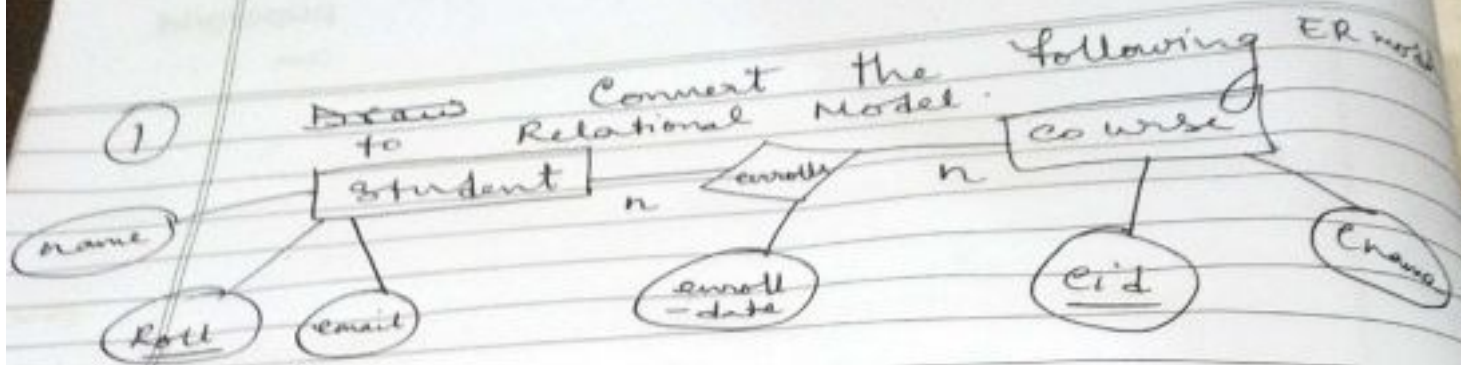 ① Draw Convert the following ER model
to Relational Model.
Student n enrolls n Course
name Roll email enroll
-date Cid Cname